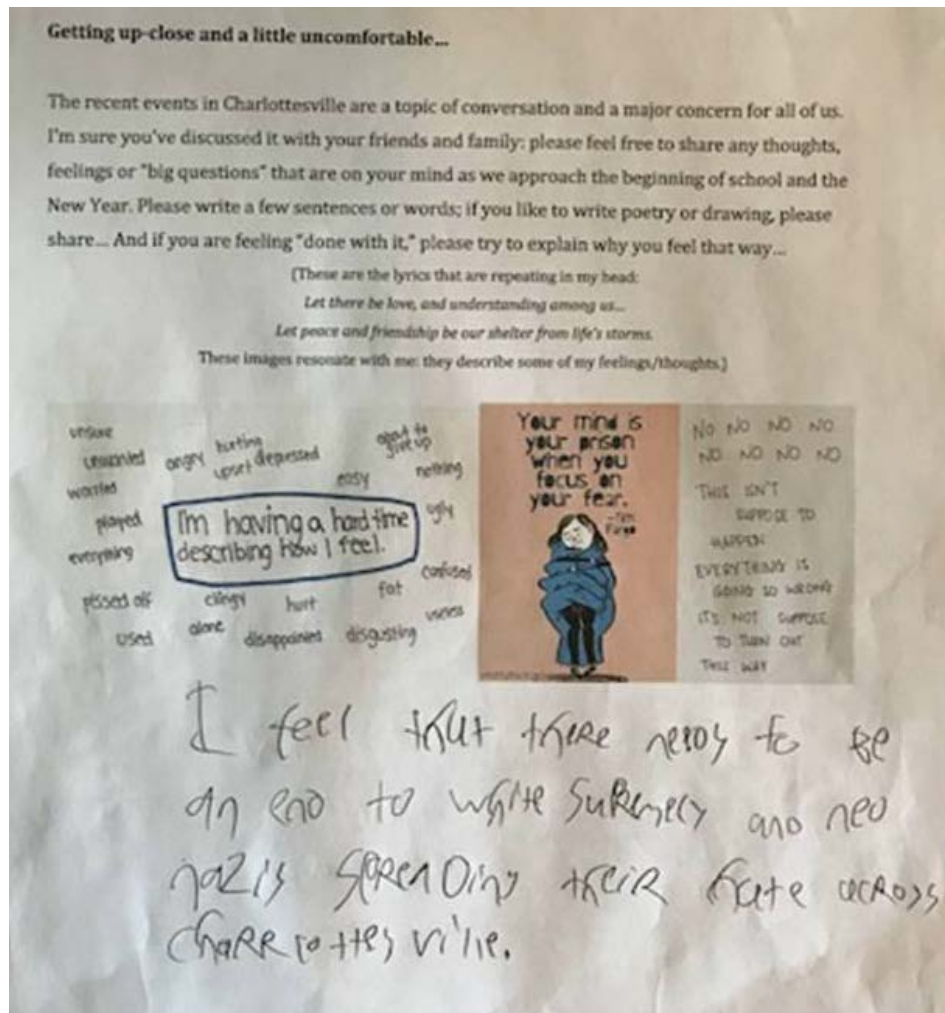 Getting up-close and a little uncomfortable...
The recent events in Charlottesville are a topic of conversation and a major concern for all of us.
I'm sure you've discussed it with your friends and family: please feel free to share any thoughts,
feelings or "big questions" that are on your mind as we approach the beginning of school and the
New Year. Please write a few sentences or words; if you like to write poetry or drawing, please
share... And if you are feeling "done with it," please try to explain why you feel that way...
(These are the lyrics that are repeating in my head:
Let there be love, and understanding among us...
Let peace and friendship be our shelter from life's storms.
These images resonate with me: they describe some of my feelings/thoughts.)
unsure
unwanted
worried
angry
hurting
upset
depressed
about to
give up
easy
nothing
played
everything
I'm having a hard time
describing how I feel.
ugly
confused
pissed off
clingy
hurt
fat
useless
used
alone
disappointed
disgusting
Your mind is
your prison
when you
focus on
your fear.
NO NO NO NO
NO NO NO NO
THIS ISN'T
SUPPOSE TO
HAPPEN
EVERYTHING IS
GOING SO WRONG
ITS NOT SUPPOSE
TO TURN OUT
THIS WAY
I feel that there needs to be
an end to white supremecy and neo
nazis spreading their hate across
charrlottesville.